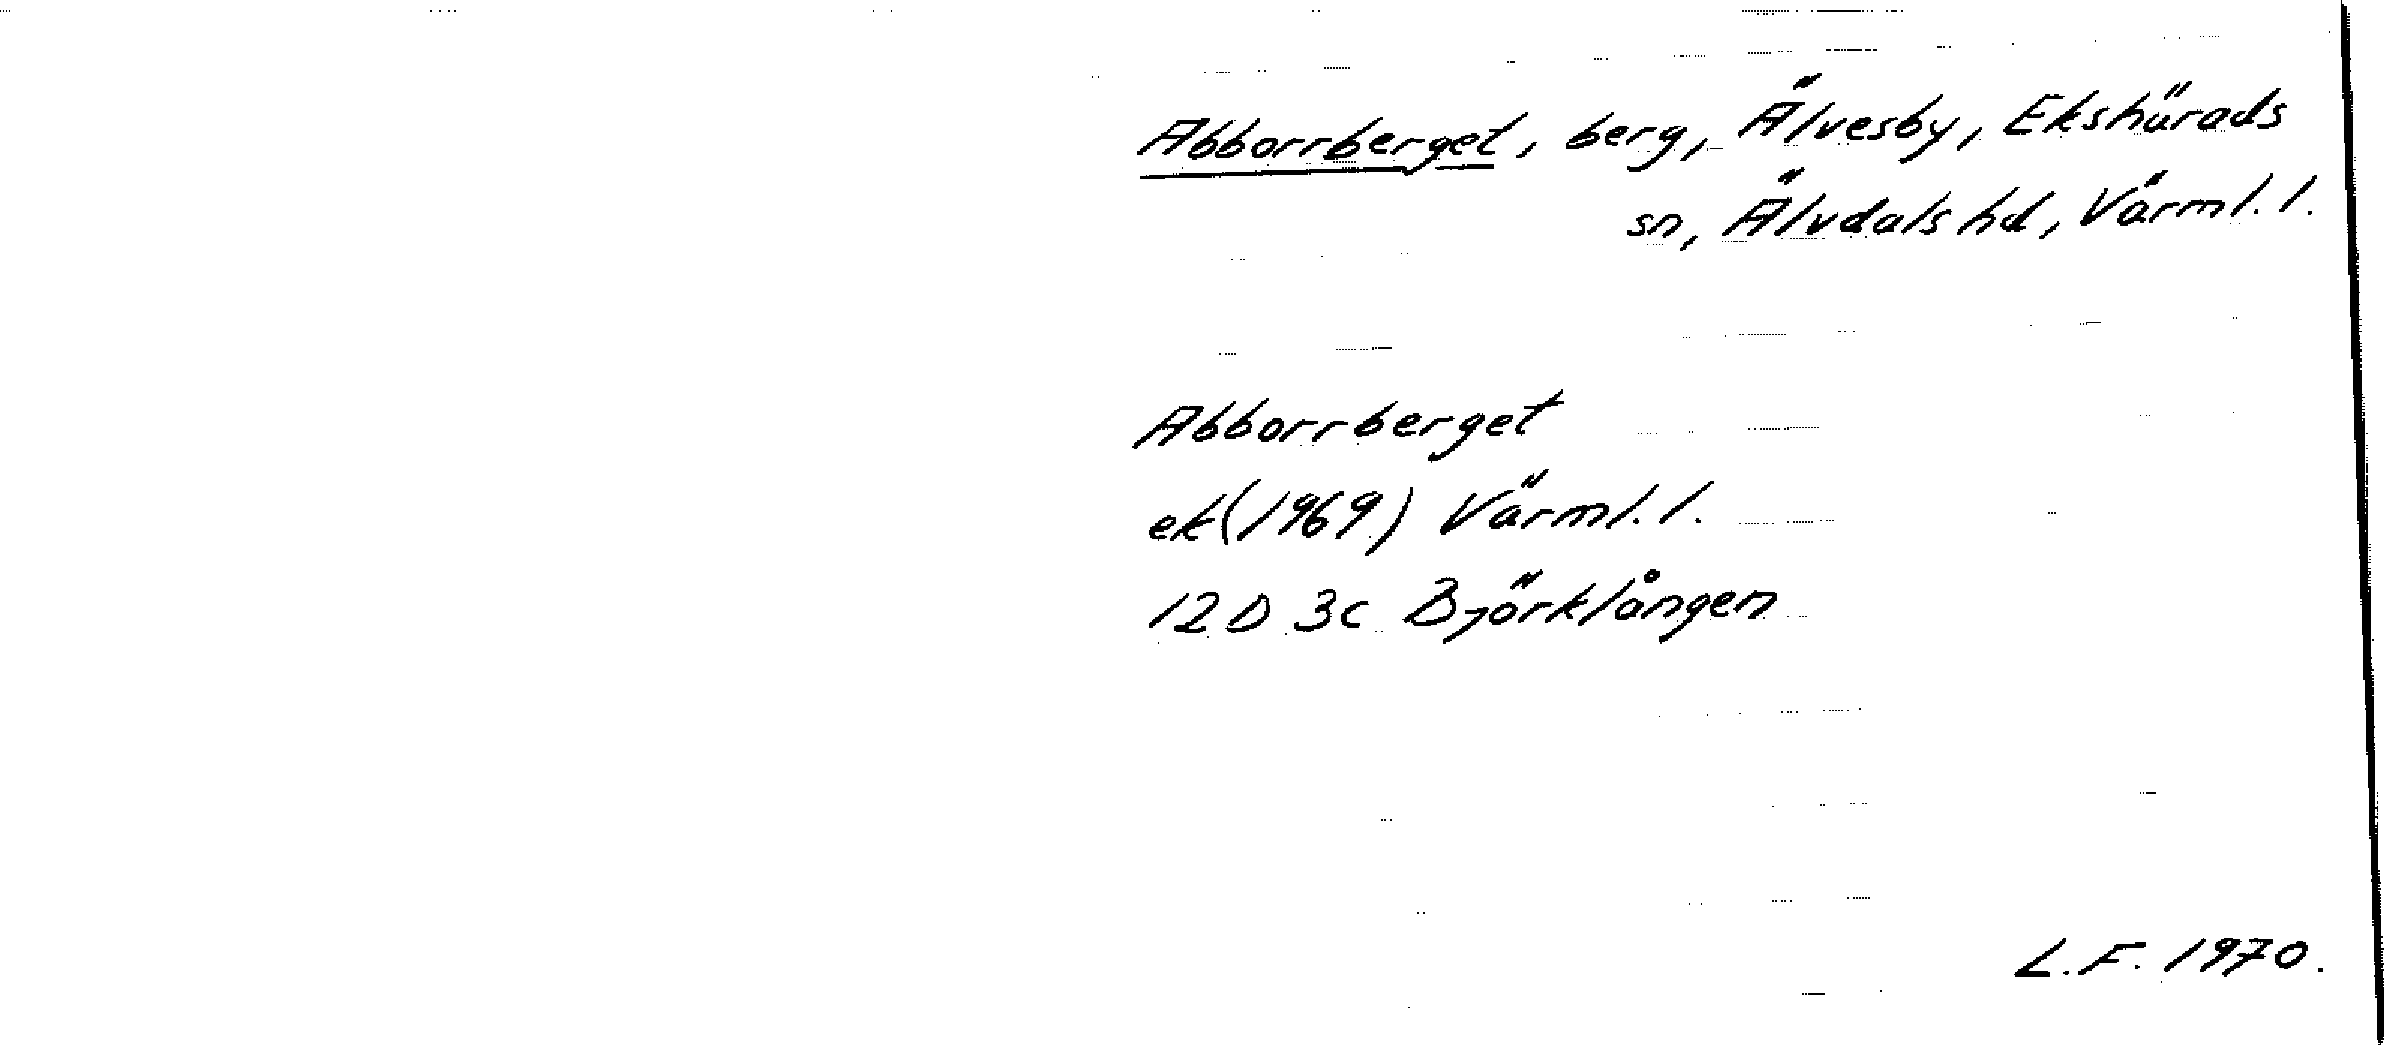 Abborrberget, berg, Älvesby, Ekshärads
sn, Älvdals hd, Värml. l.
Abborrberget
ek (1969) Värml. l.
12 D 3c Björklången
L.F. 1970.